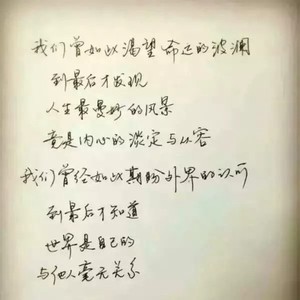 我们曾如此渴望命运的波澜
到最后才发现
人生最曼妙的风景
竟是内心的淡定与从容
我们曾经如此期盼外界的认可
到最后才知道
世界是自己的
与他人毫无关系